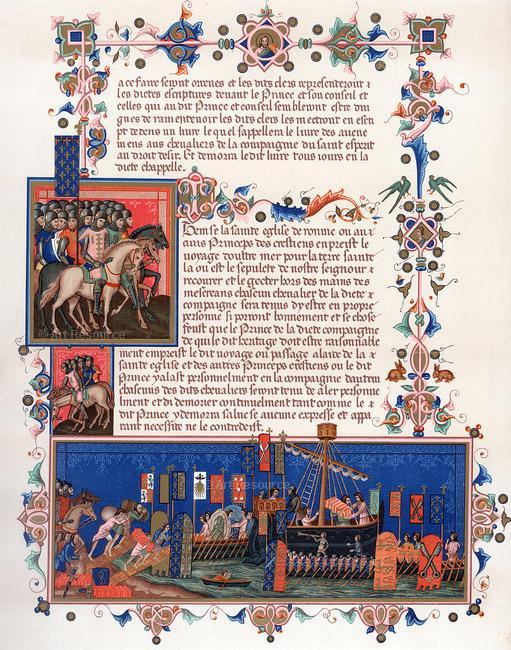 a ce faire seront ordenes et les dits clers representeront
les dictes escriptures devant le Prince et son conseil et
celles qui au dit Prince et conseil sembleront estre di
gnes de ramentevoir les dits clers les mectront en escri
pt dedens un livre le quel s appellera le livre des avene
mens aux chevaliers de la compaignie du saint esprit
au droit desir. Et demorra le dit livre tous jours en la
dicte chappelle.
Item se la sainte eglise de romme ou au
cuns Princeps des crestiens enpreist le
voyage doultre mer pour la terre sainte
la ou est le sepulcre de nostre seigneur
recourer et le gecter hors des mains des
mescreans chascun chevalier de la dicte
compaignie sera tenus dy estre en propre
personne si porront bonnement et se chose
feust que le Prince de la dicte compaignie
de qui le dit heritage doit estre raisonnable
ment empreist le dit voyage ou passage alarce de la
sainte eglise et des autres Princeps crestiens ou le dit
Prince yalast personnelment en la compaignie dautrui
chascuns dits chevaliers seront tenu de aler personne
lment et de demorer continuelment tant comme le
dit Prince y demorra sal ue se aucune expresse et appa
rant necessite ne le contredeist.
Art Resource
Art Resource
Art Resource